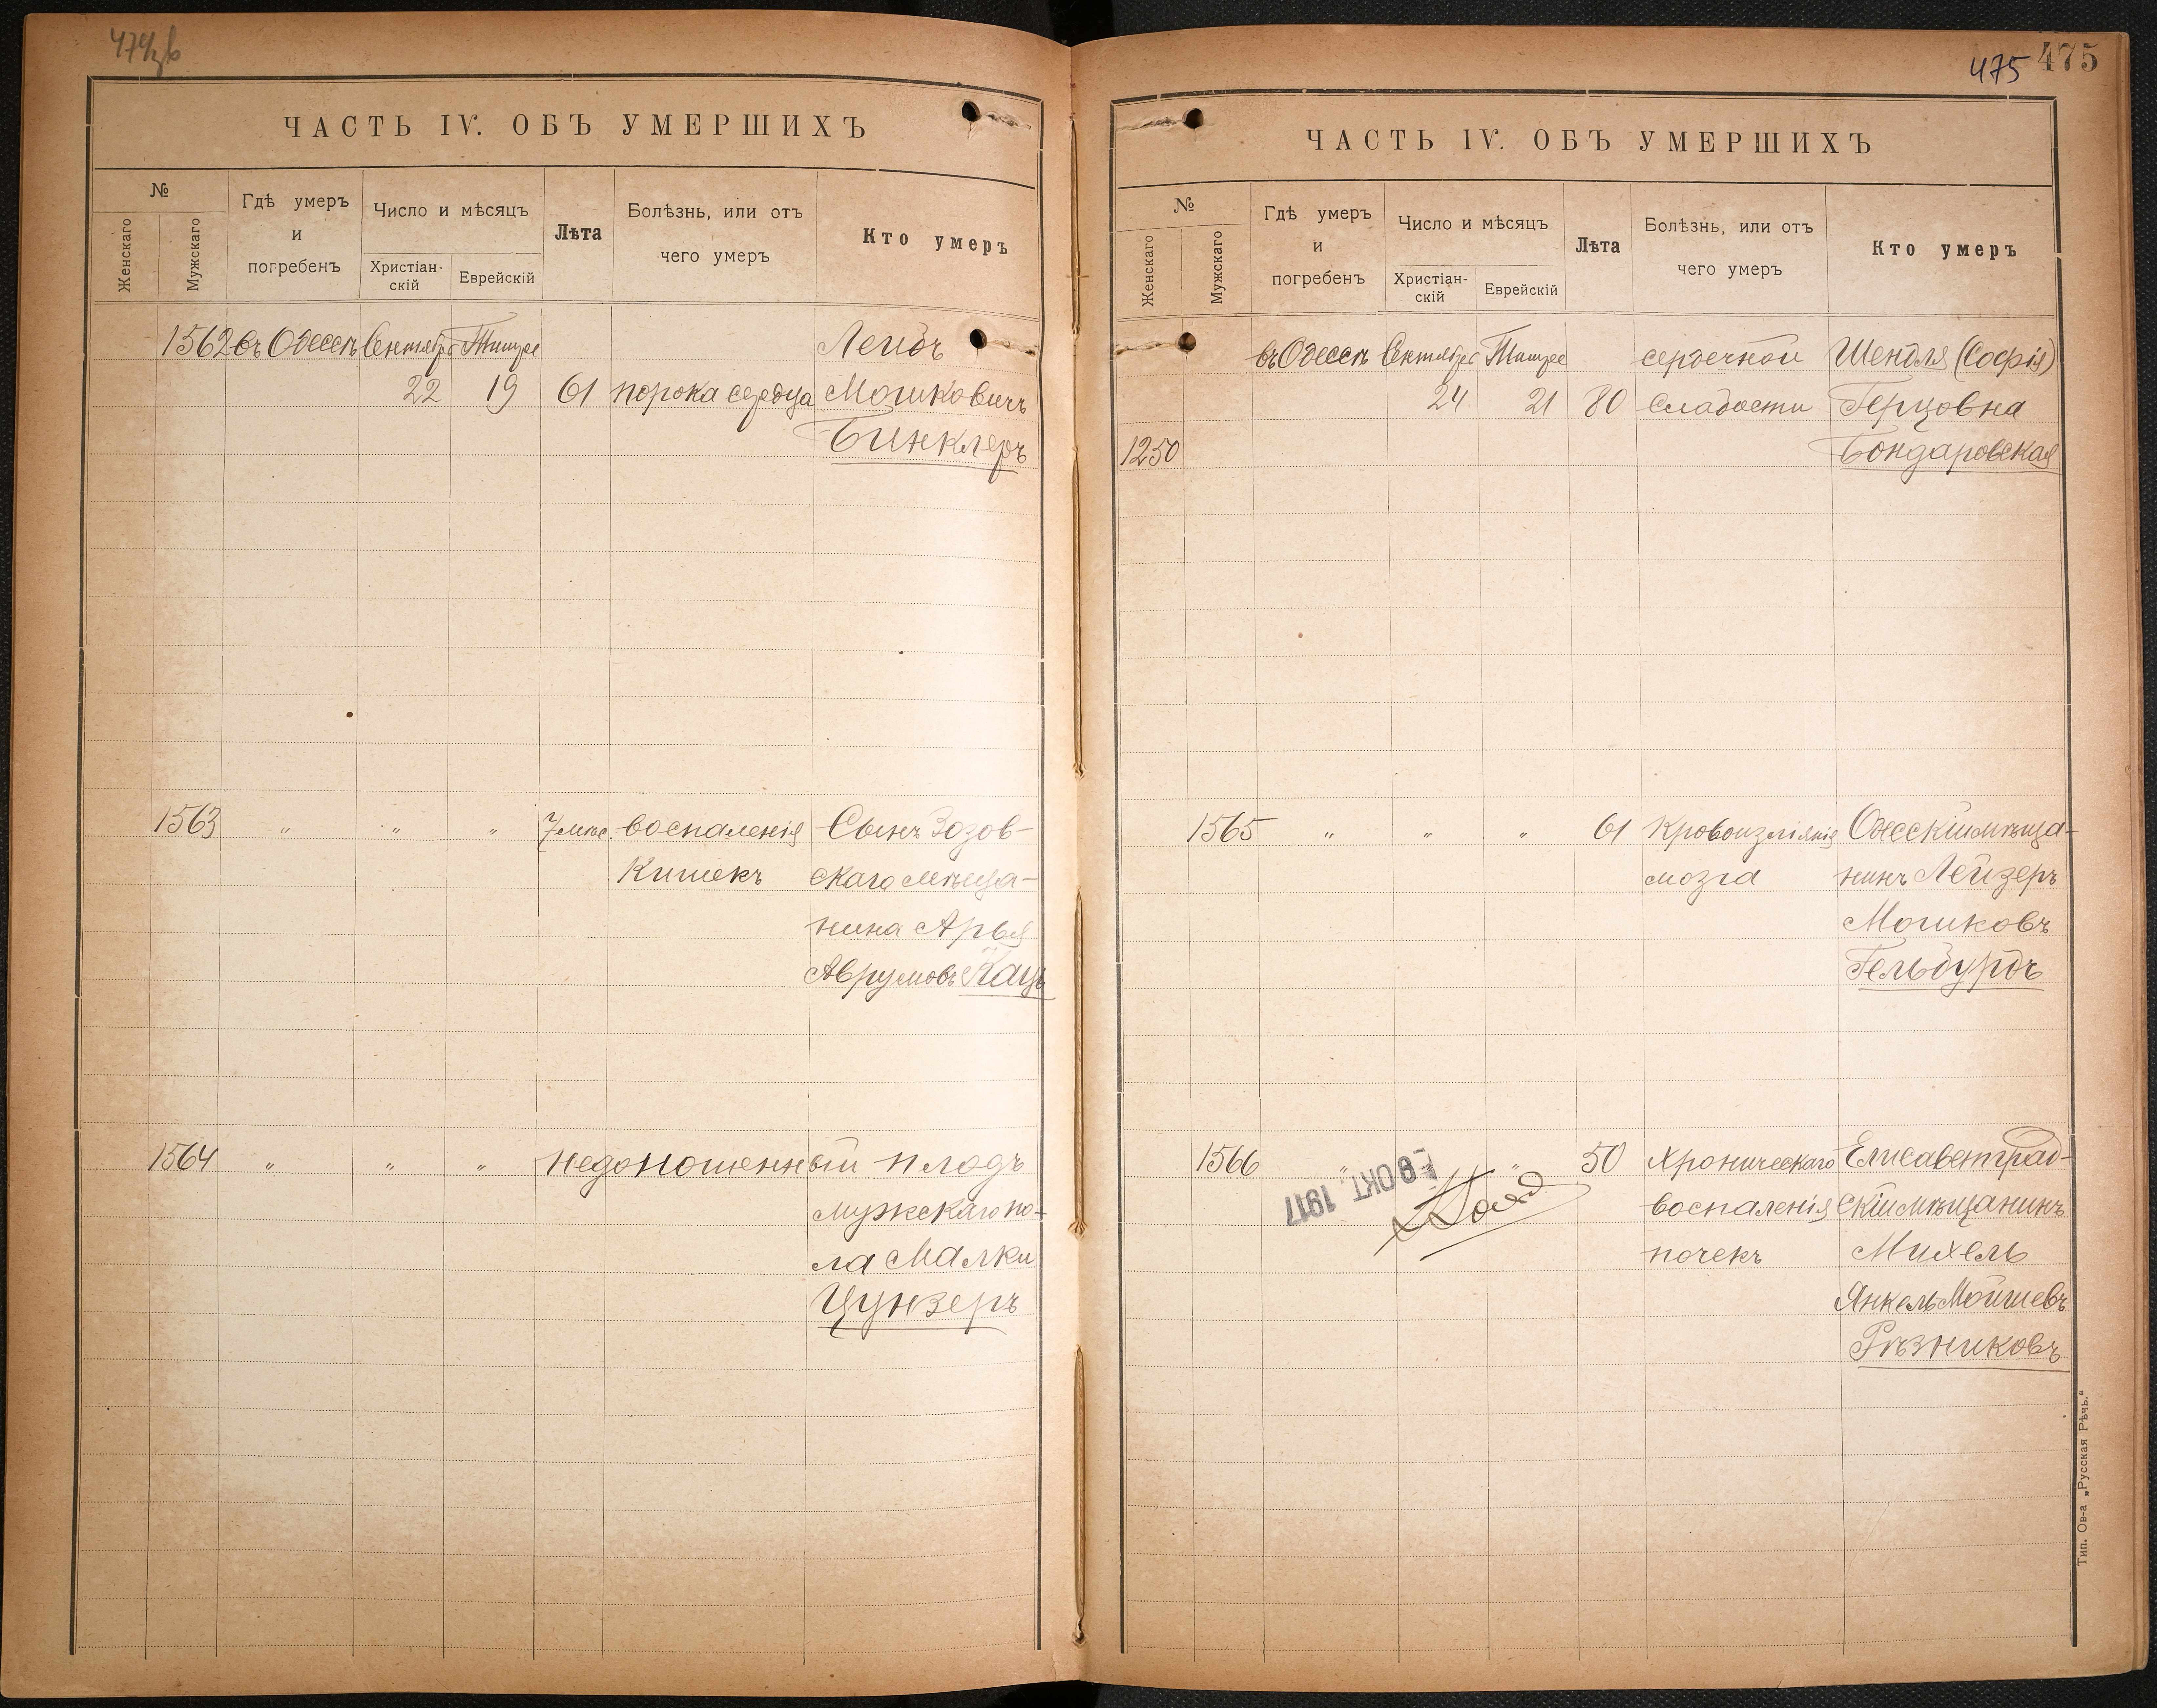 ЧАСТЬ IV. ОБЪ УМЕРШИХЪ
№
Женскаго
Мужскаго
Гдѣ умеръ
и
погребенъ
Число и мѣсяцъ
Христіан-
скій
Еврейскій
Лѣта
Болѣзнь, или отъ
чего умеръ
Кто умеръ
1562 въ Одессѣ Сентября Тишре Лейбъ
22 19 61 порока сердца Мошковичъ
Бинклеръ
1563 " " " 7 мѣс. воспаленія Сынъ Зозов-
кишекъ скаго мѣща-
нина Арья
Аврумовъ Кацъ
1564 " " " недоношенный плодъ
мужскаго по-
ла Малки
Цунзеръ
475 475
ЧАСТЬ IV. ОБЪ УМЕРШИХЪ
№
Женскаго
Мужскаго
Гдѣ умеръ
и
погребенъ
Число и мѣсяцъ
Христіан-
скій
Еврейскій
Лѣта
Болѣзнь, или отъ
чего умеръ
Кто умеръ
въ Одессѣ Сентября Тишре сердечной Шендля (Софія)
24 21 80 слабости Герцовна
1250 Бондаровская
1565 " " " 61 Кровоизліянія Одесскій мѣща-
мозга нинъ Лейзеръ
Мошковъ
Гельбурдъ
1566 " " 50 Хроническаго Елисаветград-
воспаленія скій мѣщанинъ
почекъ Михель
Янкель Мойшевъ
Рѣзниковъ
8 ОКТ. 1917
Тип. Ов-а „Русская Рѣчь."